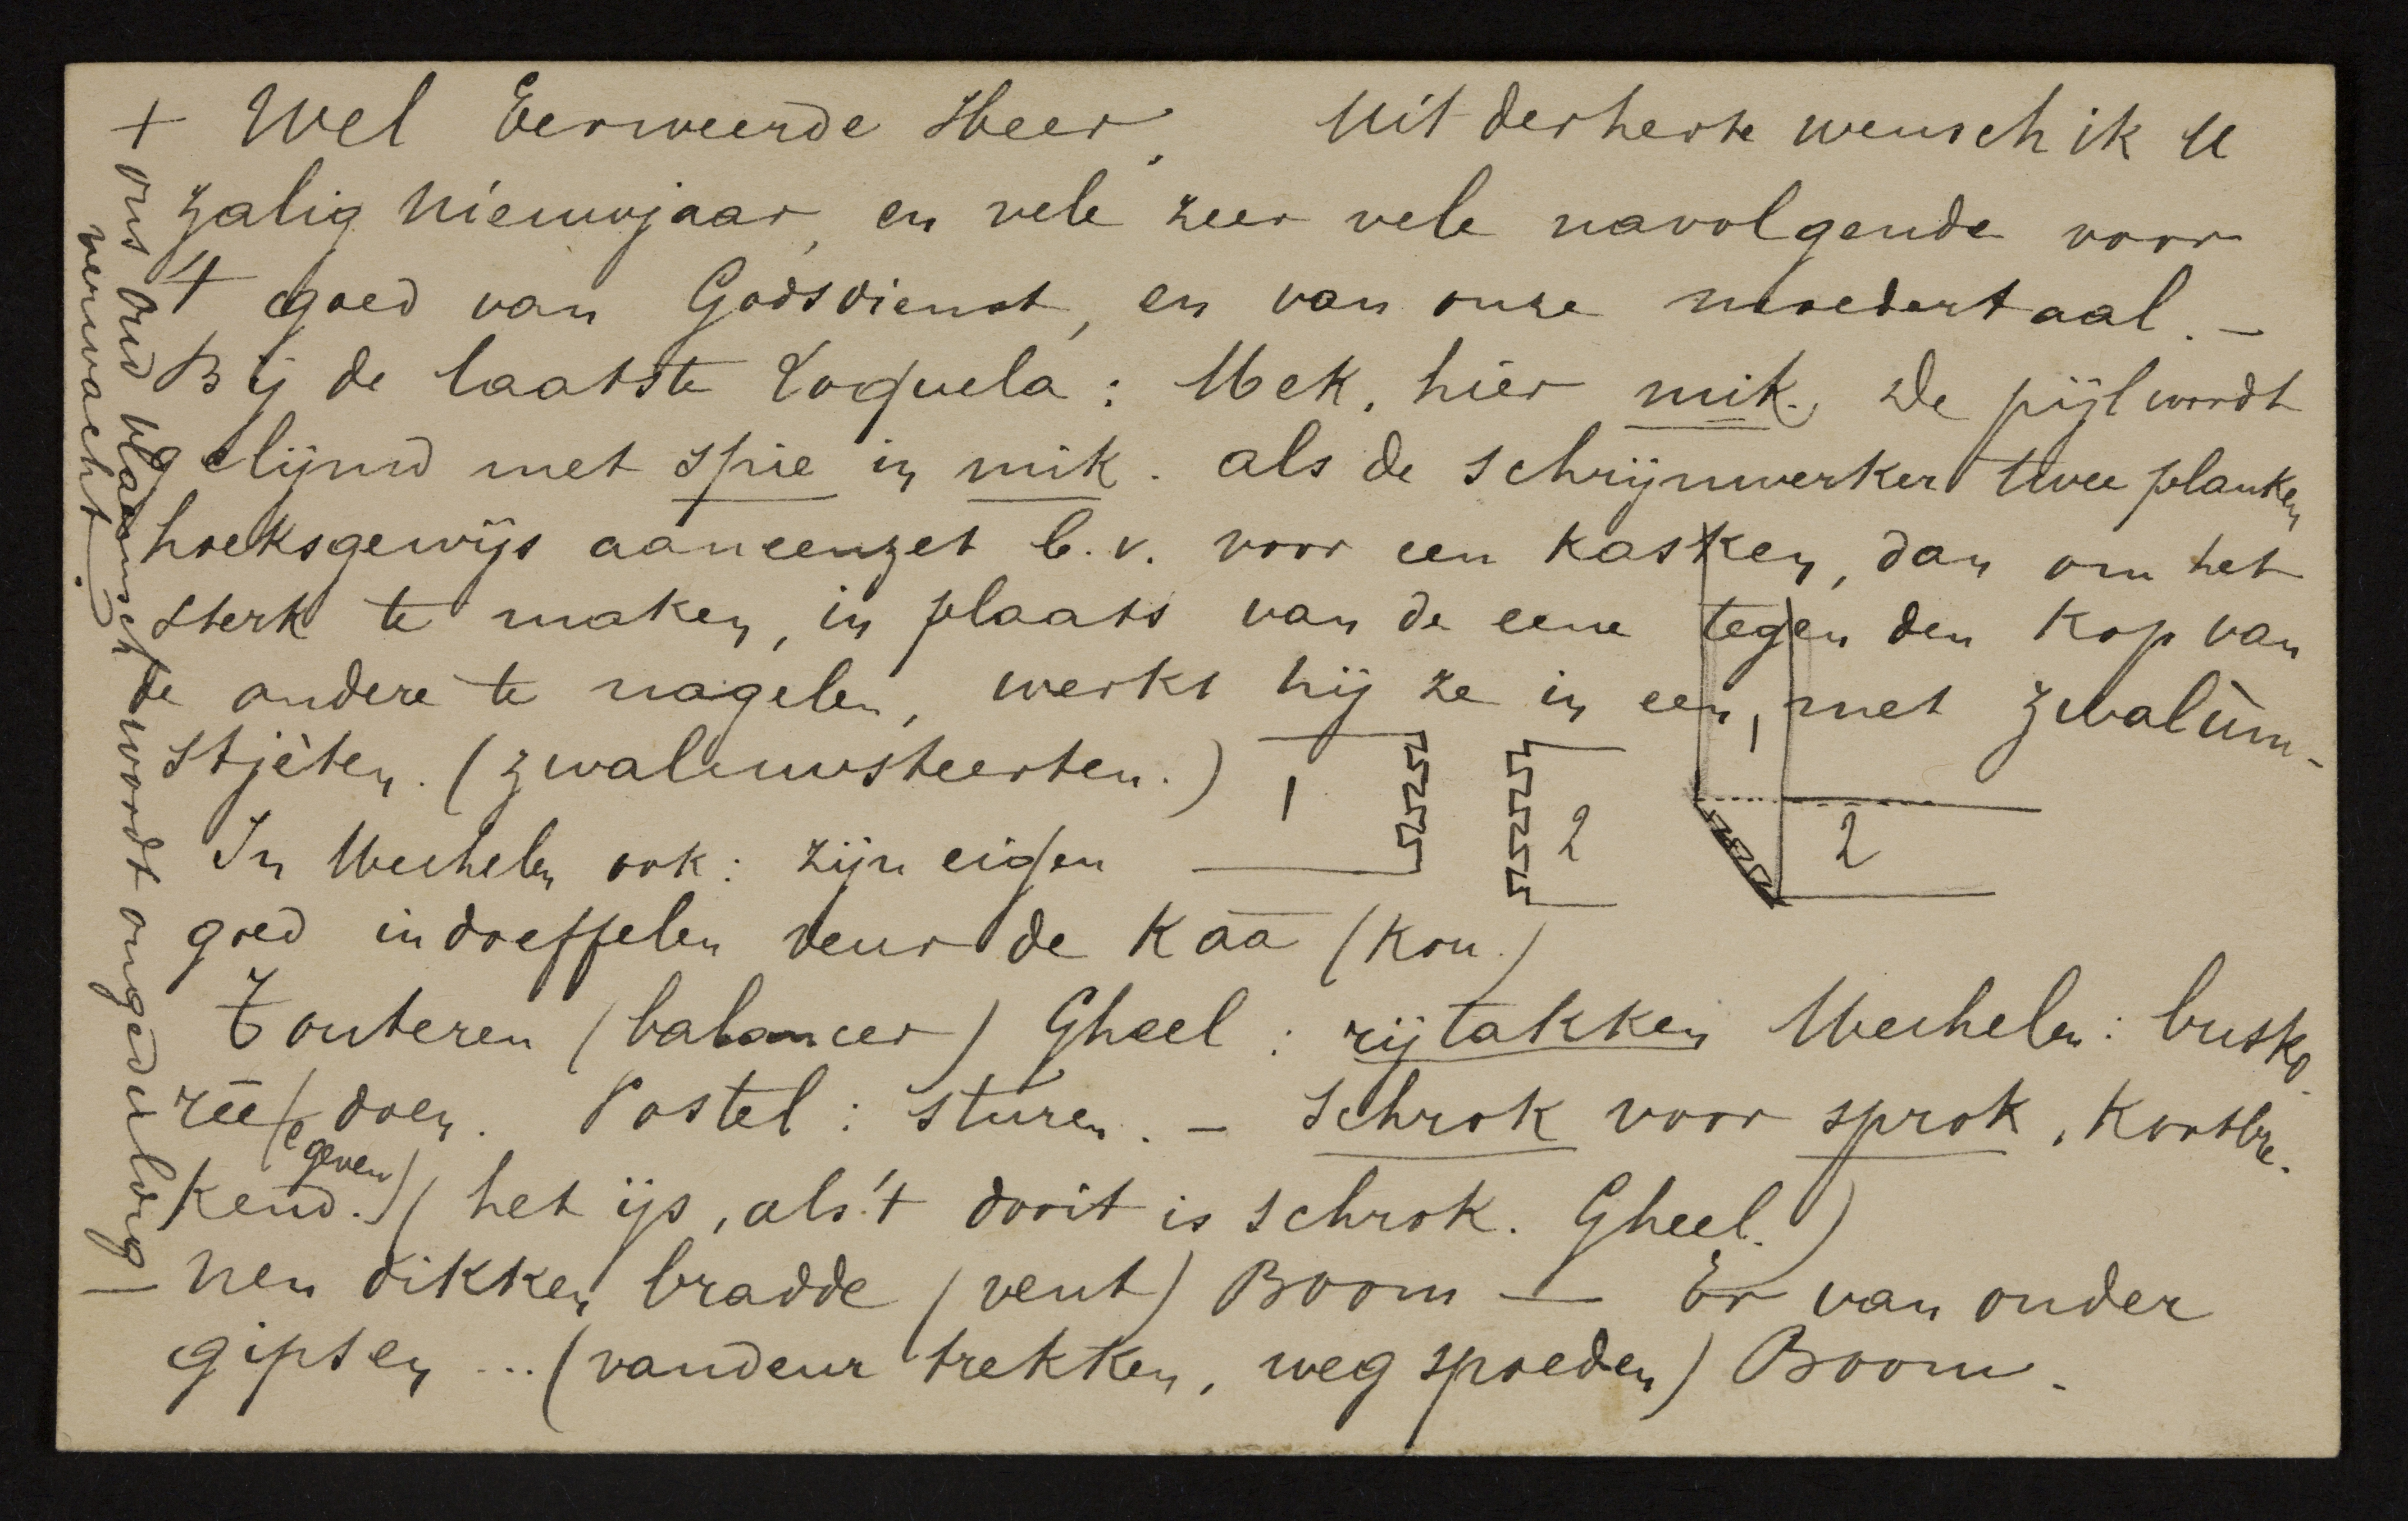 + Wel Eerweerde Heer, Uit der herte wensch ik U
zalig nieuwjaar, en vele zeer vele navolgende voor
't goed van Godsdienst, en van onze moedertaal. —
Bij de laatste Loquela: Mek, hier mik. De pijl wordt
gelijmd met spie in mik. als de schrijnwerker twee planken
hoeksgewijs aaneenzet b.v. voor een kasken, dan om het
sterk te maken, in plaats van de eene tegen den kop van
de andere te nagelen, werkt hij ze in een, met zwalùm-
stjèten. (zwaluwsteerten.)
1 2 1 2
In Mechelen ook: zijn eigen
goed indoeffelen veur de Kaa (Kou.)
Touteren (balancer) Gheel: rijtakken Mechelen: busko-
rēē doen. Postel: sturen. — schrok voor sprok, kortbre-
(e geven)
kend. (het ijs, als 't dooit is schrok. Gheel.)
nen dikken bradde (vent) Boom — Er van onder
gipsen ... (vandeur trekken, weg spoeden) Boom.
ons oud vlaamsch wordt ongeduldig
verwacht.